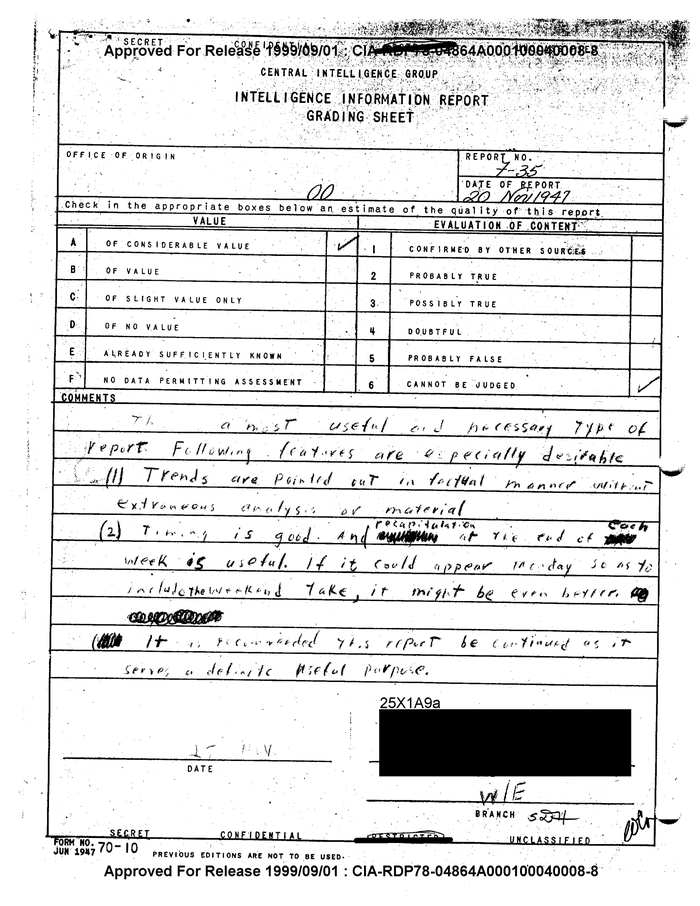 SECRET CONFIDENTIAL
Approved For Release 1999/09/01 : CIA-RDP78-04864A000100040008-8
CENTRAL INTELLIGENCE GROUP
INTELLIGENCE INFORMATION REPORT
GRADING SHEET
OFFICE OF ORIGIN
00
REPORT NO.
7-35
DATE OF REPORT
20 Nov 1947
Check in the appropriate boxes below an estimate of the quality of this report
VALUE EVALUATION OF CONTENT
A OF CONSIDERABLE VALUE ✓ 1 CONFIRMED BY OTHER SOURCES
B OF VALUE 2 PROBABLY TRUE
C OF SLIGHT VALUE ONLY 3 POSSIBLY TRUE
D OF NO VALUE 4 DOUBTFUL
E ALREADY SUFFICIENTLY KNOWN 5 PROBABLY FALSE
F NO DATA PERMITTING ASSESSMENT 6 CANNOT BE JUDGED ✓
COMMENTS
a most useful and necessary type of
report. Following features are especially desirable
(1) Trends are pointed out in factual manner without
extraneous analysis or material
(2) Timing is good. And recapitulation at the end of each
week is useful. If it could appear so as to
include the weekend take, it might be even better.
It is recommended this report be continued as it
serves a definite useful purpose.
25X1A9a
DATE
W/E
BRANCH
SECRET CONFIDENTIAL RESTRICTED UNCLASSIFIED
FORM NO. 70-10
JUN 1947
PREVIOUS EDITIONS ARE NOT TO BE USED.
Approved For Release 1999/09/01 : CIA-RDP78-04864A000100040008-8